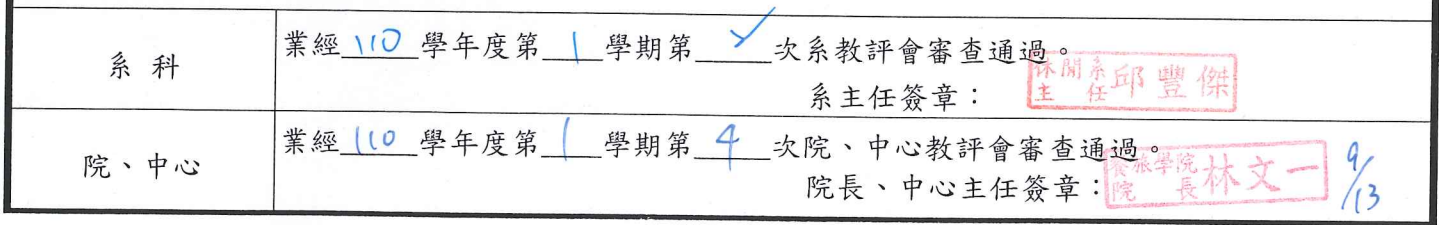 系科
業經110學年度第1學期第✓次系教評會審查通過。
系主任簽章：
休閒系主任 邱豐傑
院、中心
業經110學年度第1學期第4次院、中心教評會審查通過。
院長、中心主任簽章：
餐旅學院院長 林文一
9/13